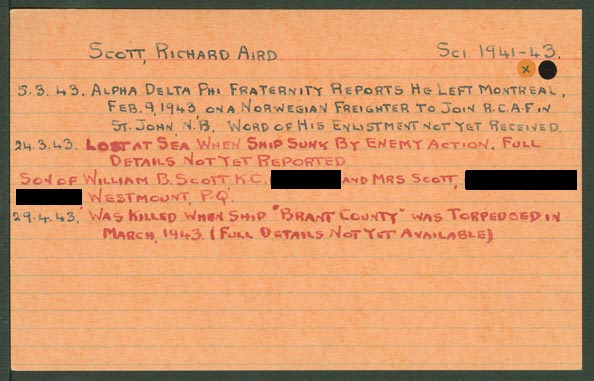 Scott, Richard Aird Sci. 1941-43.
x
5.3.43. Alpha Delta Phi Fraternity Reports He Left Montreal,
Feb. 9, 1943, on a Norwegian Freighter to Join R.C.A.F in
St. John, N.B. Word of His Enlistment not yet Received.
24.3.43. Lost at Sea When Ship Sunk By Enemy Action. Full
Details Not Yet Reported
Son of William B. Scott K.C. and Mrs Scott,
Westmount, P.Q.
29.4.43. Was Killed When Ship "Brant County" was Torpedoed in
March, 1943. (Full Details Not Yet Available)